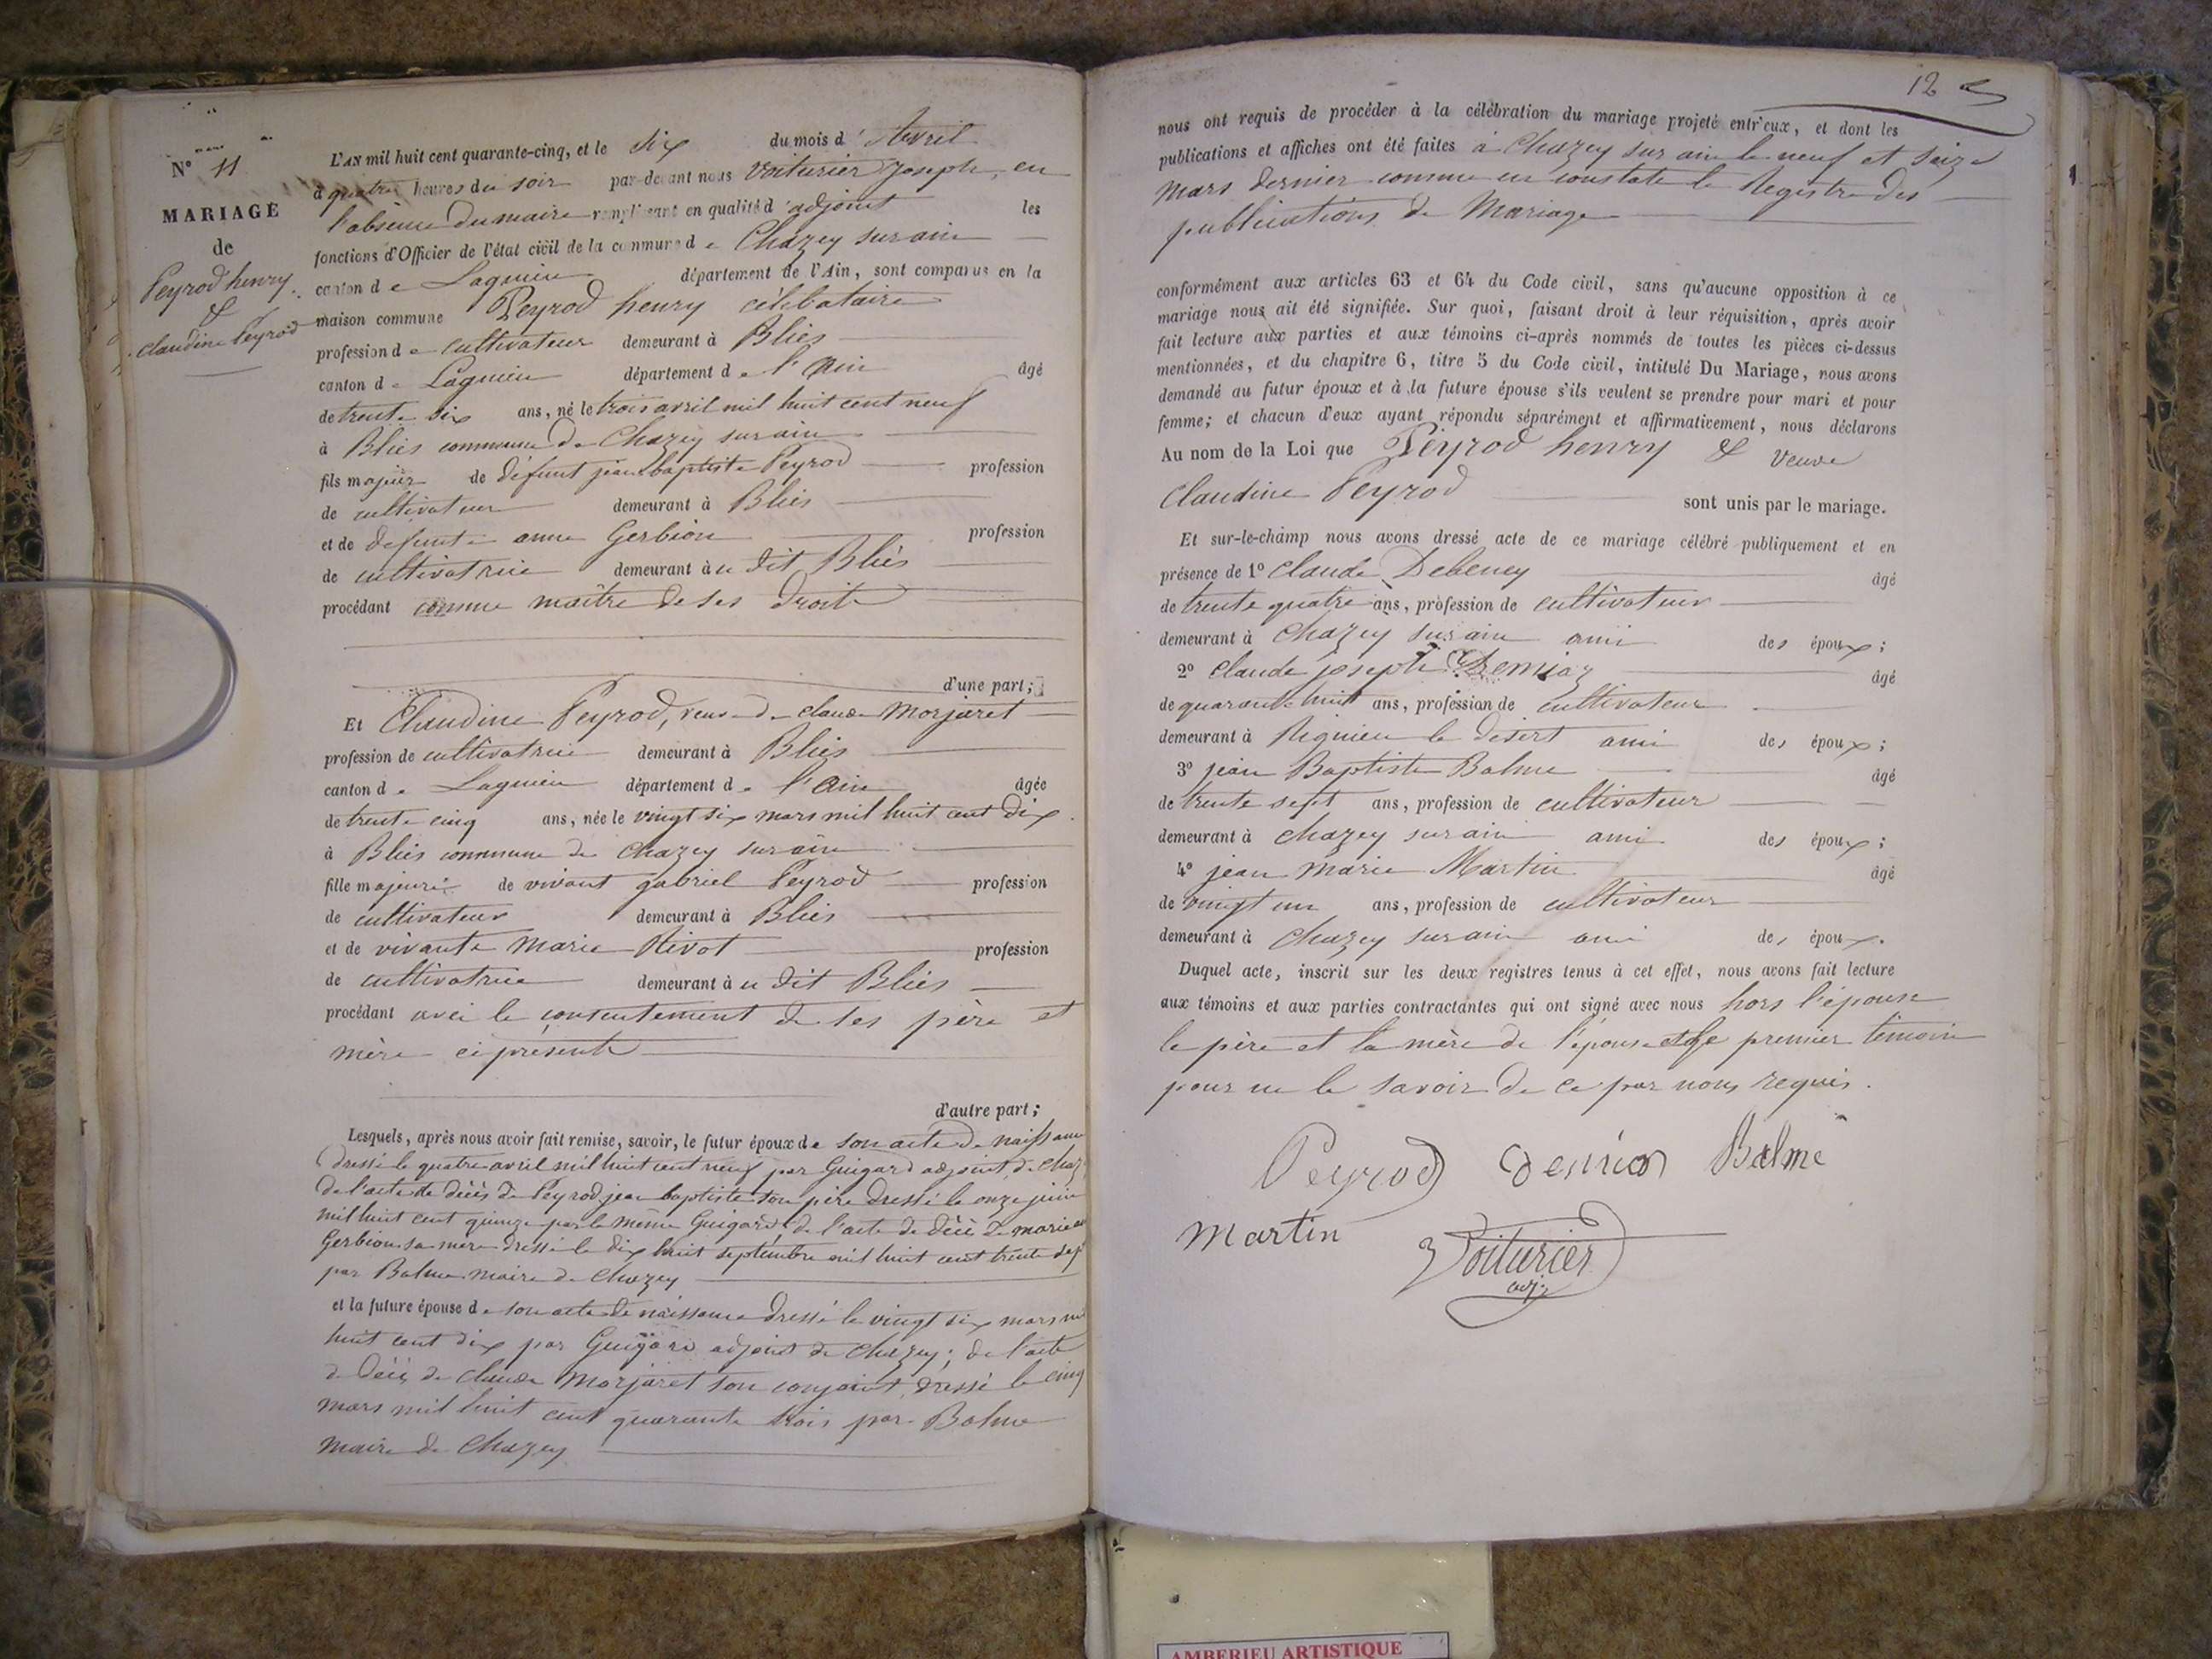 N° 11
MARIAGE
de
Peyrod henry
&
claudine Peyrod
L'AN mil huit cent quarante-cinq, et le six du mois d'Avril
à quatre heures du soir par-devant nous Voiturier Joseph, en
l'absence du maire remplissant en qualité d'adjoint les
fonctions d'Officier de l'état civil de la commune de Chazey sur ain
canton de Lagnieu département de l'Ain, sont comparus en la
maison commune Peyrod henry célibataire
profession de cultivateur demeurant à Bliès
canton de Lagnieu département de l'Ain âgé
de trente six ans, né le trois avril mil huit cent neuf
à Bliès commune de Chazey sur ain
fils majeur de défunt jean baptiste Peyrod profession
de cultivateur demeurant à Bliès
et de defunte anne Gerbion profession
de cultivatrice demeurant au dit Bliès
procédant comme maître de ses droits
d'une part;
Et Claudine Peyrod, veuve de claude Morjaret
profession de cultivatrice demeurant à Bliès
canton de Lagnieu département de l'Ain âgée
de trente cinq ans, née le vingt six mars mil huit cent dix
à Bliès commune de Chazey sur ain
fille majeure de vivant gabriel Peyrod profession
de cultivateur demeurant à Bliès
et de vivante Marie Rivot profession
de cultivatrice demeurant au dit Bliès
procédant avec le consentement de ses père et
mère ci présents
d'autre part;
Lesquels, après nous avoir fait remise, savoir, le futur époux de son acte de naissance
dressé le quatre avril mil huit cent neuf par Guigard adjoint de Chaz
de l'acte de décès de Peyrod jean baptiste son père dressé le onze juin
mil huit cent quinze par le même Guigard & de l'acte de décès de marie
Gerbion sa mère dressé le dix huit septembre mil huit cent trente sept
par Balme maire de Chazey
et la future épouse de son acte de naissance dressé le vingt six mars mil
huit cent dix par Guigard adjoint de Chazey; de l'acte
de décès de claude Morjaret son conjoint, dressé le cinq
mars mil huit cent quarante trois par Balme
maire de Chazey
12
nous ont requis de procéder à la célébration du mariage projeté entr'eux, et dont les
publications et affiches ont été faites à Chazey sur ain le neuf et seize
mars dernier comme en constate le Registre des
publications de Mariage
conformément aux articles 63 et 64 du Code civil, sans qu'aucune opposition à ce
mariage nous ait été signifiée. Sur quoi, faisant droit à leur réquisition, après avoir
fait lecture aux parties et aux témoins ci-après nommés de toutes les pièces ci-dessus
mentionnées, et du chapitre 6, titre 5 du Code civil, intitulé Du Mariage, nous avons
demandé au futur époux et à la future épouse s'ils veulent se prendre pour mari et pour
femme; et chacun d'eux ayant répondu séparément et affirmativement, nous déclarons
Au nom de la Loi que Peyrod henry & veuve
Claudine Peyrod sont unis par le mariage.
Et sur-le-champ nous avons dressé acte de ce mariage célébré publiquement et en
présence de 1° Claude Debeney âgé
de trente quatre ans, profession de cultivateur
demeurant à Chazey sur ain ami des époux;
2° Claude joseph Demiaz âgé
de quarante huit ans, profession de cultivateur
demeurant à Rignieu le desert ami des époux;
3° jean Baptiste Balme âgé
de trente sept ans, profession de cultivateur
demeurant à Chazey sur ain ami des époux;
4° jean marie Martin âgé
de vingt un ans, profession de cultivateur
demeurant à Chazey sur ain ami des époux.
Duquel acte, inscrit sur les deux registres tenus à cet effet, nous avons fait lecture
aux témoins et aux parties contractantes qui ont signé avec nous hors l'épouse
le père et la mère de l'épouse et le premier témoin
pour ne le savoir de ce par nous requis.
Peyrod Balme
Martin Voiturier
adj.
AMBERIEU ARTISTIQUE